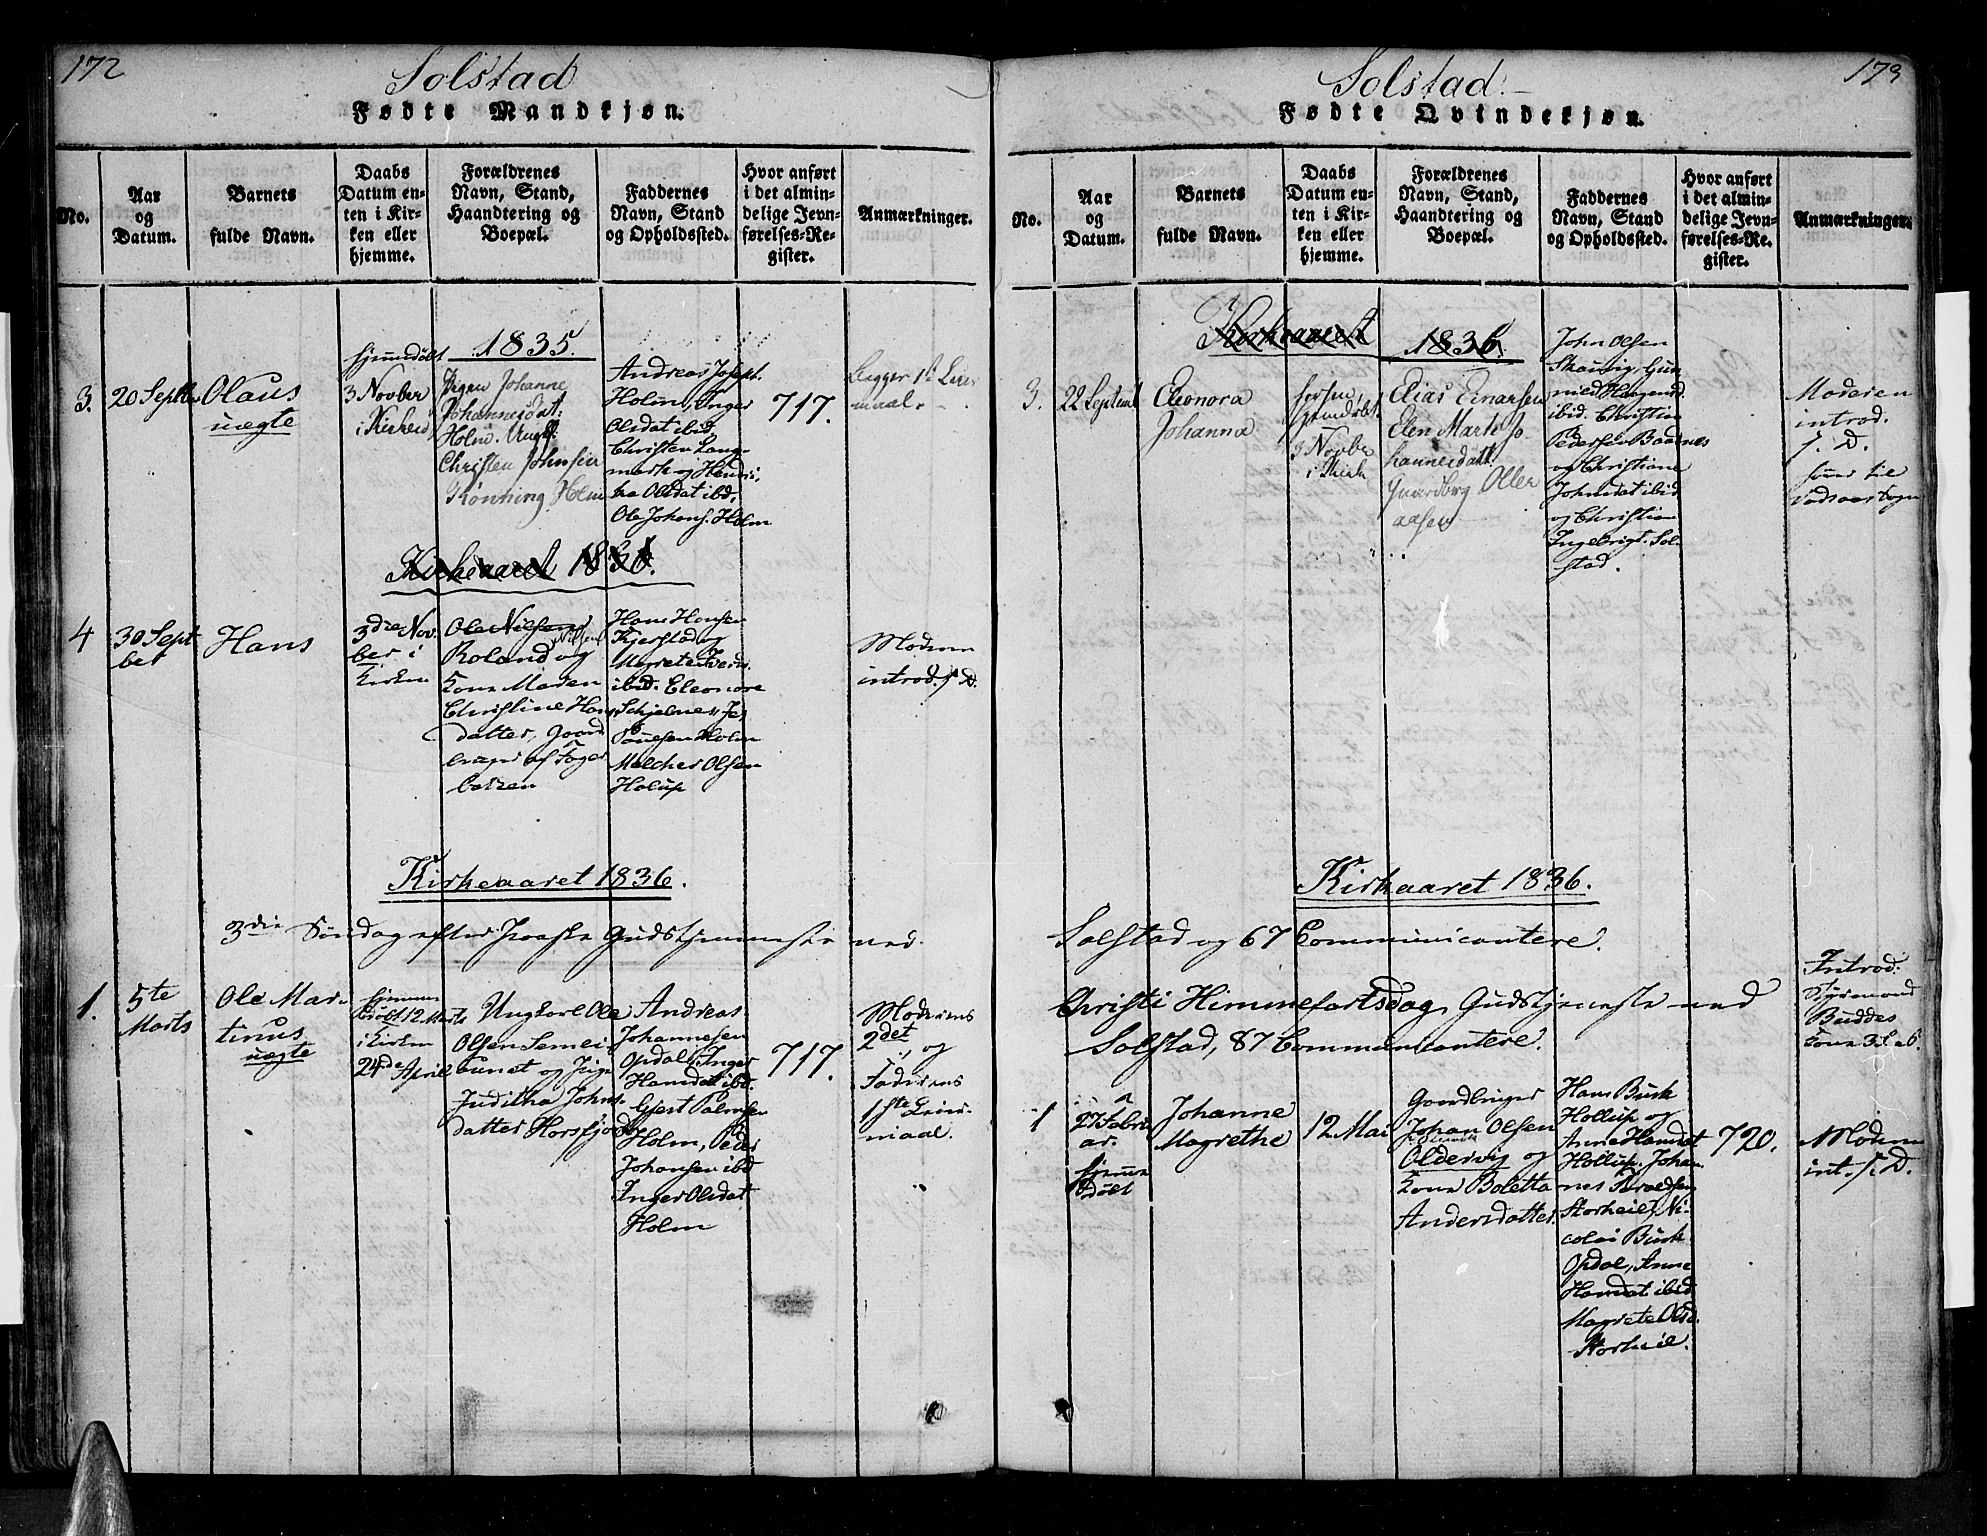 172
Solstad
Fødte Mandkjøn.
No.
Aar
og
Datum.
Barnets
fulde Navn.
Daabs
Datum en-
ten i Kir-
ken eller
hjemme.
Forældrenes
Navn, Stand,
Haandtering og
Boepæl.
Faddernes
Navn, Stand
og Opholdssted.
Hvor anført
i det almin-
delige Jevn-
førelses-Re-
gister.
Anmærkninger.
1835.
3.
20 Septbr
Olaus
uægte
hjemmedøbt
3 Novber
i Kirken
Pigen Johanne
Johannesdat:
Holm. Ungk:
Christen Johnsen
Rønning Holm
Andreas Joseph.
Holm, Inger
Olsdat ibid
Christen Lang-
mark og Hendri-
ka Olsdat ibd.
Ole Johans. Holm
717.
Begges 1st Leier-
maal.
Kirkeaaret 1836.
4
30 Sept
ber
Hans
3die Nov.
ber i
Kirken
Ole Nilsen
Nilsens
Roland og
Kone Maren
Christine Hans
datter, Gaard
bruger af Tøger
batzen
Hans Hansen
Kjerstad og
Magrete Iversd.
ibid. Eleonore
Schjelner, Je
Poulsen Holm
Melcher Olsen
Holup
Moderen
introd. s. D.
Kirkeaaret 1836.
3die Søndag efter Paaske Gudstjenneste ved
1.
5te
Marts
Ole Mar-
tinus
uægte
hjemme
døbt 12 Marts
i Kirken
24de April
Ungkarl Ole
Olsen Semei
unat og Pige
Juditha Johns
datter Horsfjord
Andreas
Johannesen
Opdal, Inger
Hansdat ibd.
Gjert Palmesen
Holm, Peder
Johansen ibd
Inger Olsdat
Holm
717.
Moderens
2det, og
Faderens
1ste Leier-
maal.
173
Solstad.
Fødte Qvindekjøn.
No.
Aar
og
Datum.
Barnets
fulde Navn.
Daabs
Datum en-
ten i Kir-
ken eller
hjemme.
Forældrenes
Navn, Stand,
Haandtering og
Boepæl.
Faddernes
Navn, Stand
og Opholdssted.
Hvor anført
i det almin-
delige Jevn-
førelses-Re-
gister.
Anmærkninger.
Kirkeaaret 1836
3.
22 Septembr
Eleonora
Johanna
hjemdøbt
3 Novber
i Kirk
Elias Einarsen
Elen Marte Jo-
hannesdatt:
Gaardbrg Oller
aasen
John Olsen
Skauvig, Gun
nild Hagensd
ibid. Christian
Pedersen Baadnes
og Christiane
Johnsdat ibid
og Christian
Ingebrigt. Sol-
stad.
Moderen
introd.
s. D.
hører til
Vadsaas Sogn
Kirkeaaret 1836.
Solstad og 67 Communicantere.
Christi Himmelfartsdag, Gudstjeneste ved
Solstad, 87 Communicantere.
Introd:
Styrmand
Buddes
Kone 3 S. a P.
1
27 Febru
ar.
hjemme
døbt
Johanne
Magrethe
12 Mai
Gaardbruger
Johan Olsen
Oldervig og
Kone Boletta
Andersdatter.
Hans Busk
Hollup og
Anne Hansdat
Hollup. Johan
nes Troelsen
Storheil, Ni-
colai Busk
Opdal, Anne
Hansdat ibid
Magrete Olsd.
Storheil.
720.
Moderen
int. s. D.